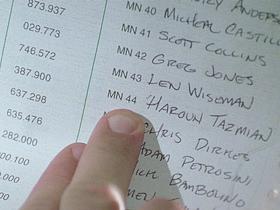 873.937
029.773
746.572
387.900
637.298
635.476
282.000
00.100
00.000
MN 40 MICHEAL CASTILL
MN 41 SCOTT COLLINS
MN 42 GREG JONES
MN 43 LEN WISEMAN
MN 44 HAROUN TAZMIAN
CHRIS DIRKES
ADAM PETROSINI
BAMBOLINO